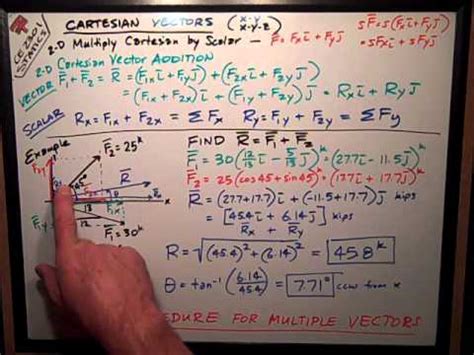 CE 2601
STATICS
CARTESIAN VECTORS (x-y
x-y-z)
2-D Multiply Cartesian by Scalar – F̄ = Fxī + Fyj̄
5F̄ = 5(Fxī + Fyj̄)
= 5Fxī + 5Fyj̄
2-D Cartesian Vector ADDITION
VECTOR F̄1 + F̄2 = R̄ = (F1xī + F1yj̄) + (F2xī + F2yj̄)
= (F1x + F2x)ī + (F1y + F2y)j̄ = Rxī + Ryj̄
SCALAR Rx = F1x + F2x = ΣFx Ry = F1y + F2y = ΣFy
Example
F̄2 = 25ᵏ
45°
R̄
x
13
12
F̄1 = 30ᵏ
F1y
FIND R̄ = F̄1 + F̄2
F̄1 = 30(12/13 ī – 5/13 j̄) = (27.7ī – 11.5j̄)
F̄2 = 25(cos45ī + sin45j̄) = (17.7ī + 17.7j̄)
R̄ = (27.7+17.7)ī + (-11.5+17.7)j̄
= [45.4ī + 6.14j̄] kips
R̄x + R̄y
R = √(45.4)² + (6.14)² = 45.8ᵏ
θ = tan⁻¹(6.14/45.4) = 7.71° ccw from x
EDURE FOR MULTIPLE VECTORS